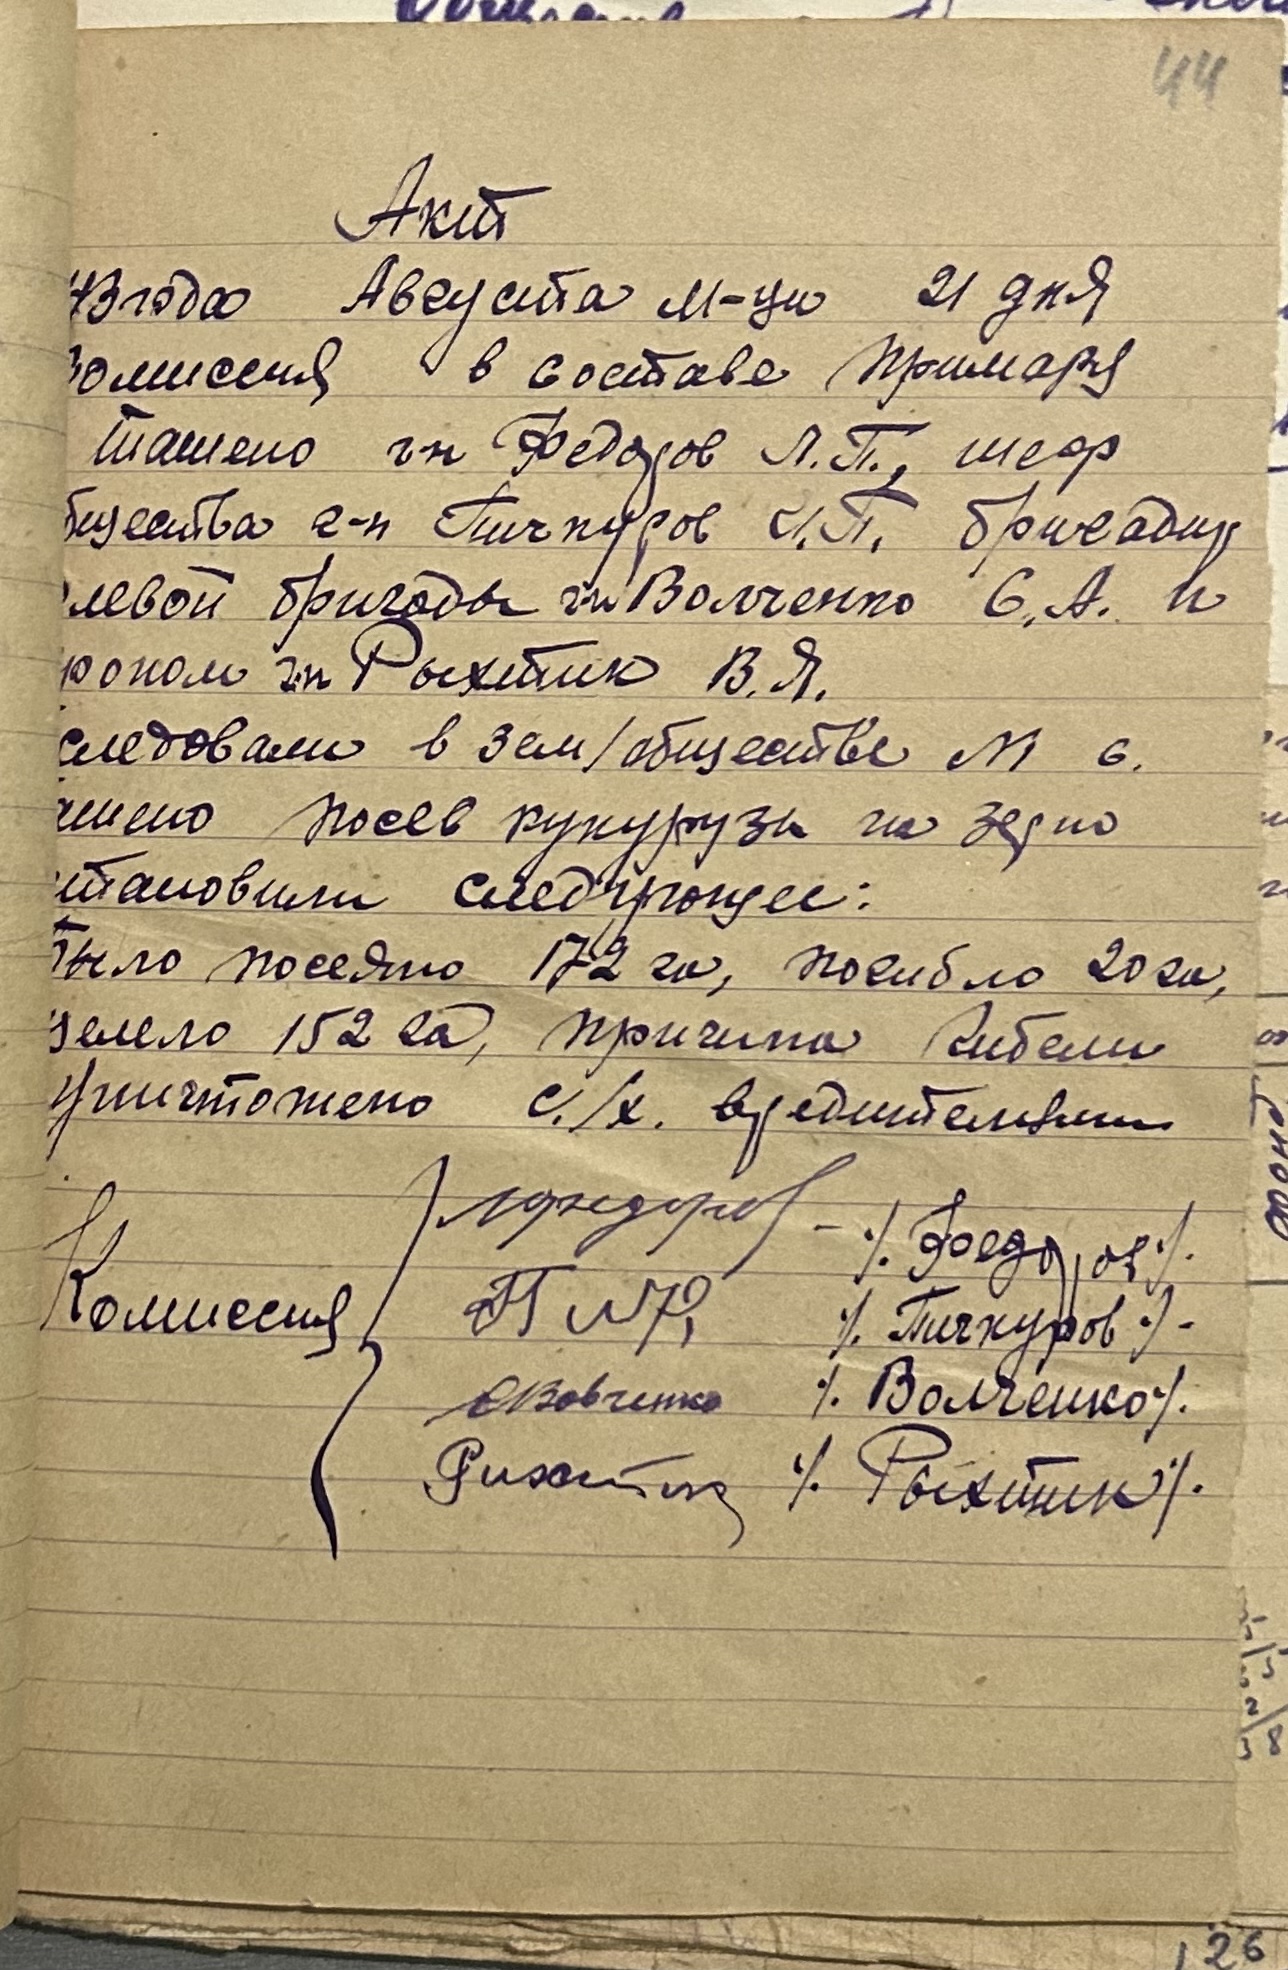 44
Акт
43 года Августа м-ца 21 дня
омиссия в составе примаря
Ташено г-н Федоров Л.П., шеф
бщества г-н Пичкуров И.П. бригадир
левой бригады г-н Волченко С.А. и
роном г-н Рыхтик В.Я.
следовали в зем/обществе №1 с.
ашено посев кукурузы на зерно
становили следующее:
было посеяно 172 га, погибло 20 га,
уцелело 152 га, причина гибели
уничтожено с./х. вредителями
Комиссия
/. Федоров /.
/. Пичкуров /. -
Вовченко /. Волченко /.
Рихтик /. Рыхтик /.
126